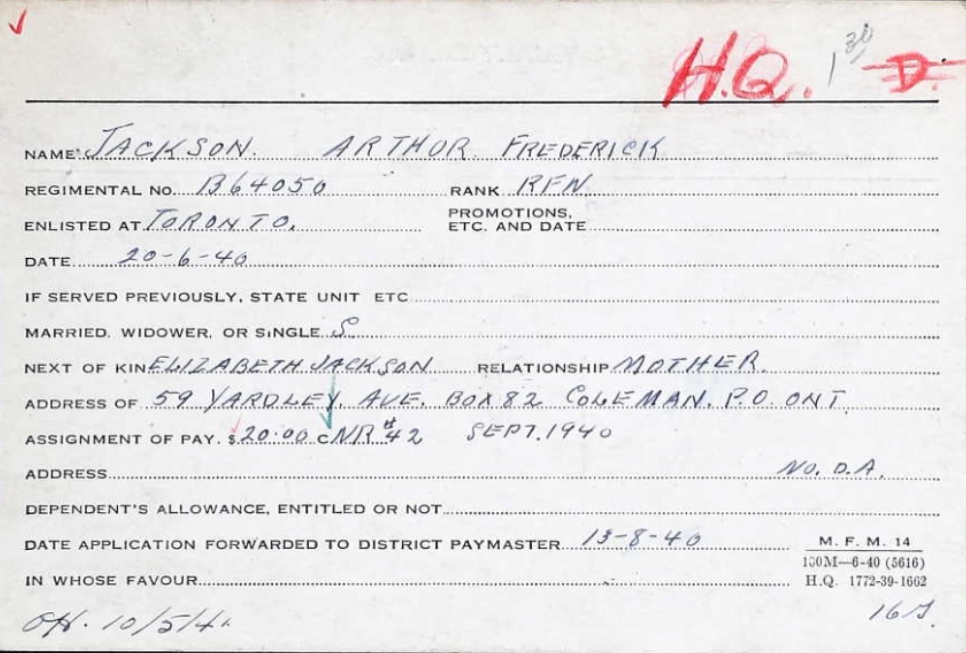 H.Q. 1 30 D.
NAME JACKSON. ARTHUR FREDERICK
REGIMENTAL NO. B64050 RANK RFN.
ENLISTED AT TORONTO. PROMOTIONS, ETC. AND DATE
DATE 20-6-40
IF SERVED PREVIOUSLY, STATE UNIT ETC
MARRIED, WIDOWER, OR SINGLE S
NEXT OF KIN ELIZABETH JACKSON RELATIONSHIP MOTHER.
ADDRESS OF 59 YARDLEY. AVE. BOX 82 COLEMAN. P.O. ONT.
ASSIGNMENT OF PAY. $20.00 C NR #42 SEPT. 1940
ADDRESS NO. D.A.
DEPENDENT'S ALLOWANCE, ENTITLED OR NOT
DATE APPLICATION FORWARDED TO DISTRICT PAYMASTER 13-8-40
M. F. M. 14
130M—6-40 (5616)
IN WHOSE FAVOUR H.Q. 1772-39-1662
10/5/41